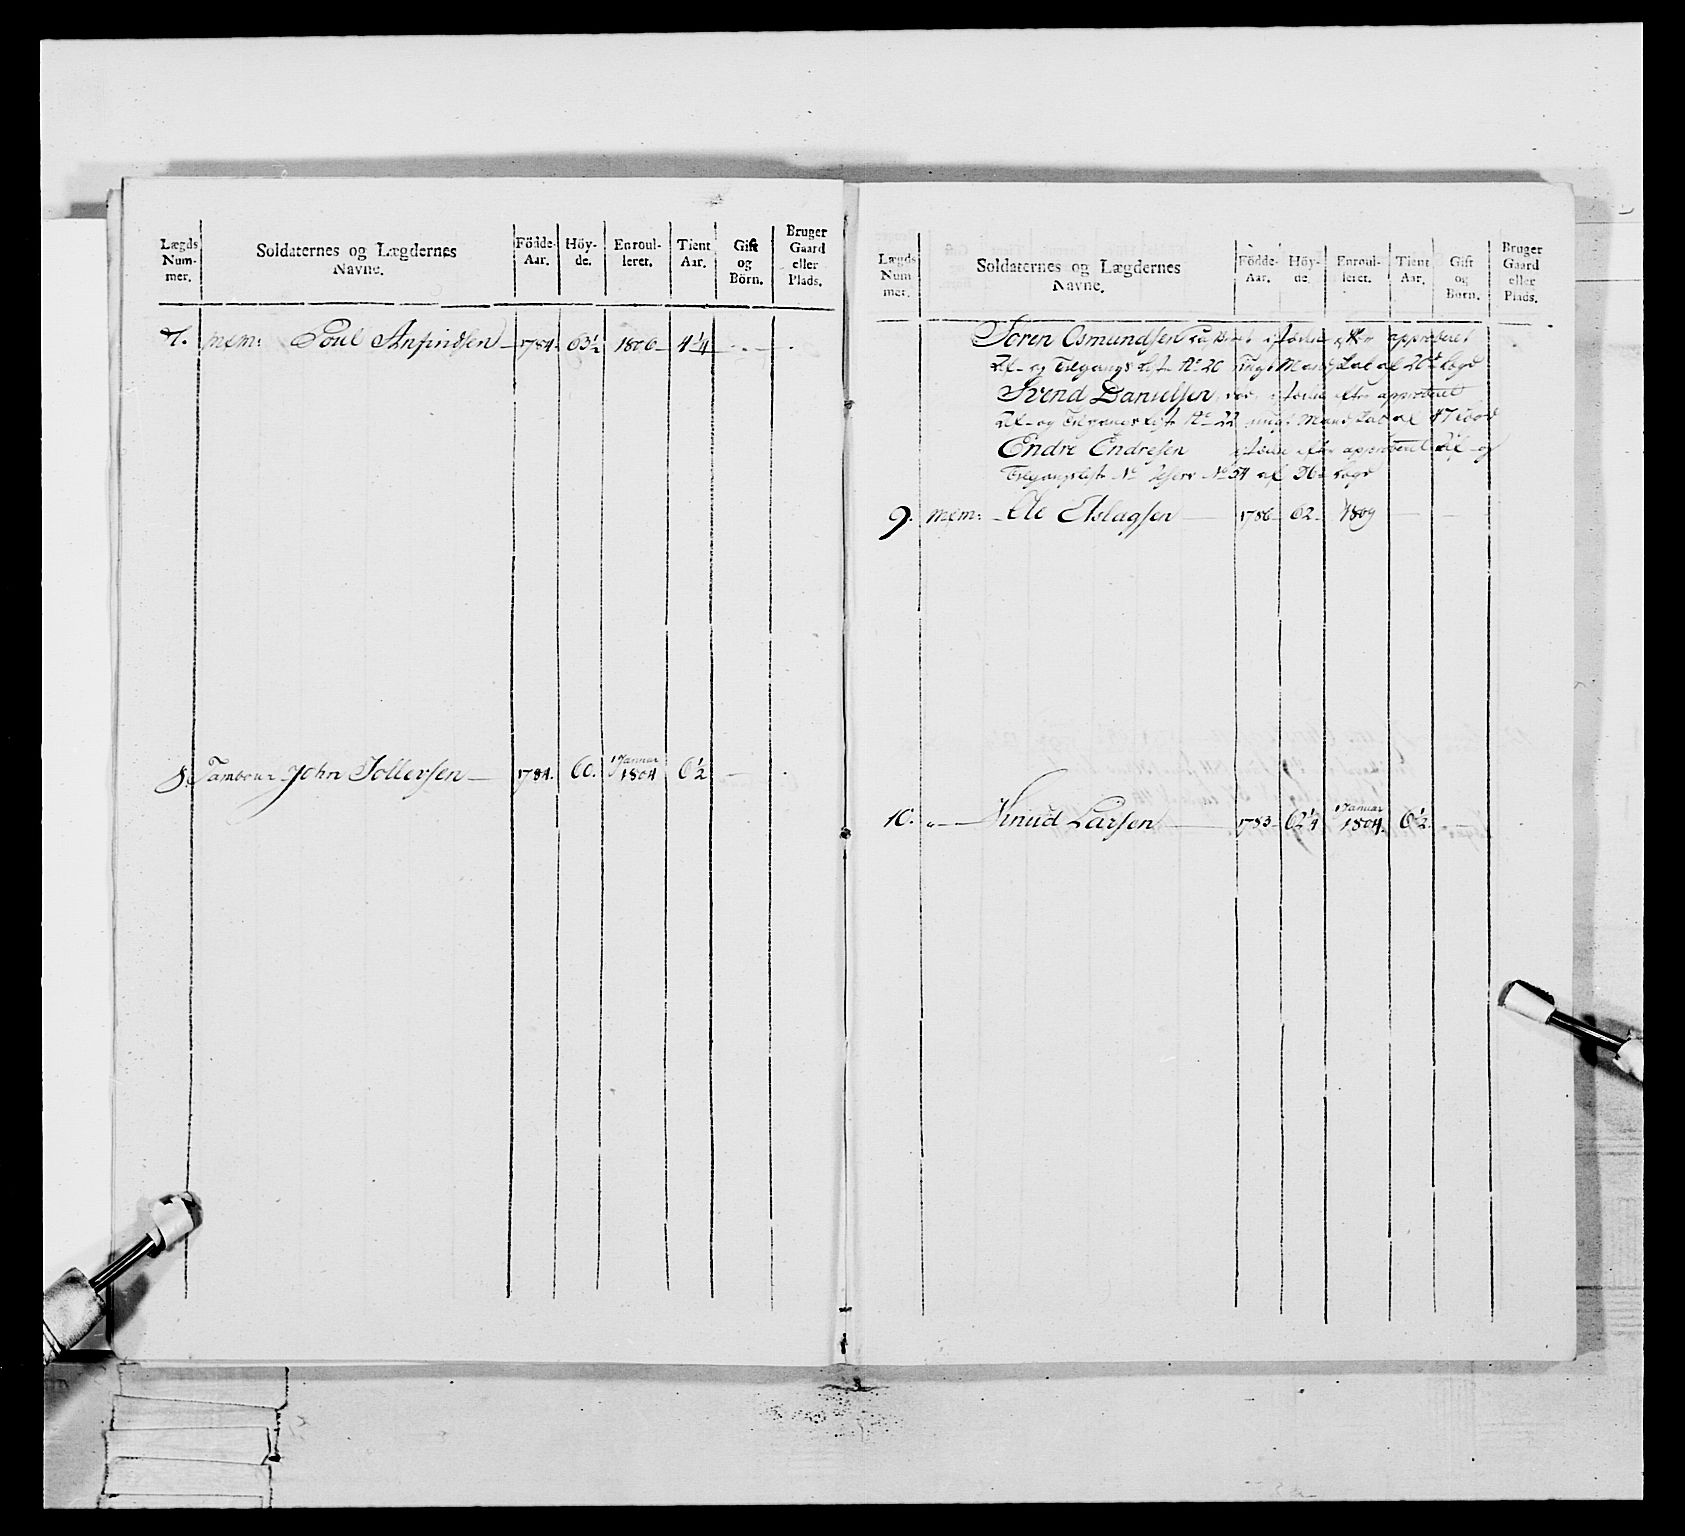 Lægds Num- mer.
Soldaternes og Lægdernes Navne.
Födde- Aar.
Höy- de.
Enroul- leret.
Tient Aar.
Gift og Börn.
Bruger Gaard eller Plads.
7. mem: Poul Anfindsen 1784. 63½ 1806 4¼
8. Tambour John Tollevsen 1784. 60. Januar 1804 6½
Lægds Num- mer.
Soldaternes og Lægdernes Navne.
Födde- Aar.
Höy- de.
Enroul- leret.
Tient Aar.
Gift og Börn.
Bruger Gaard eller Plads.
Soren Osmundsen efter approberet
Af- og Tilgangs List No 20 Mand
Svend Danielsen efter approberet
Af- og Tilgangs List No 22 Mand
Endre Endresen efter approberet Af- og
Tilgangsliste No 54 af Lægd
9. mem: Ole Aslagsen 1786 62. 1809
10. Knud Larsen 1783 62¼ Januar 1804. 6½.